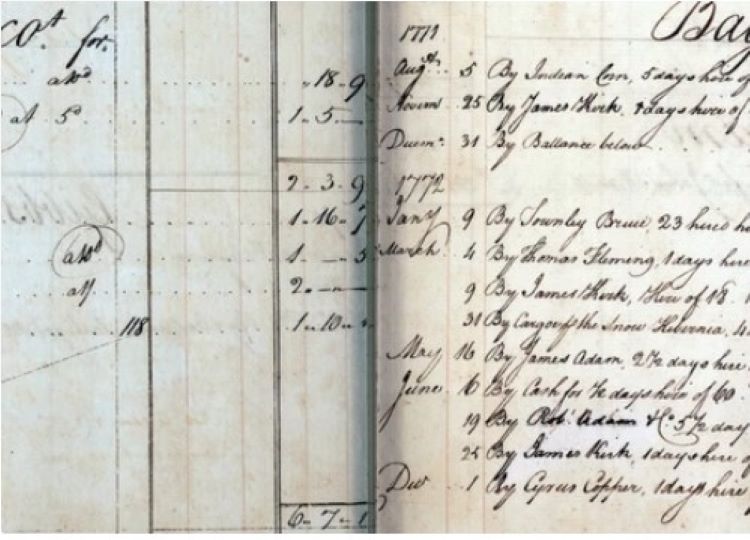 Cot. for.
" 18 " 9
at 5
1 " 5 " —
2 " 3 " 9
1 " 16 " 1
1 " — " 5
2 " — " —
118
1 " 10 "
6 " 7 " 1
Ba
1771
Augt. 5 By Indian Corn, 5 days hire of
Novem 25 By James Kirk, days hire of
Decemr. 31 By Ballance below
1772
Jany 9 By Townley Bruce, 23 hired
March 4 By Thomas Fleming, 1 days hire
9 By James Kirk, Hire of 18
31 By Cargo of the Snow Hibernia,
May 16 By James Adam, 2 1/2 days hire
June 6 By Cash for 1/2 days hire of 60
19 By Robt. Adam & Co. 5 1/2 day
25 By James Kirk, 1 days hire of
Decr 1 By Cyrus Copper, 1 days hire